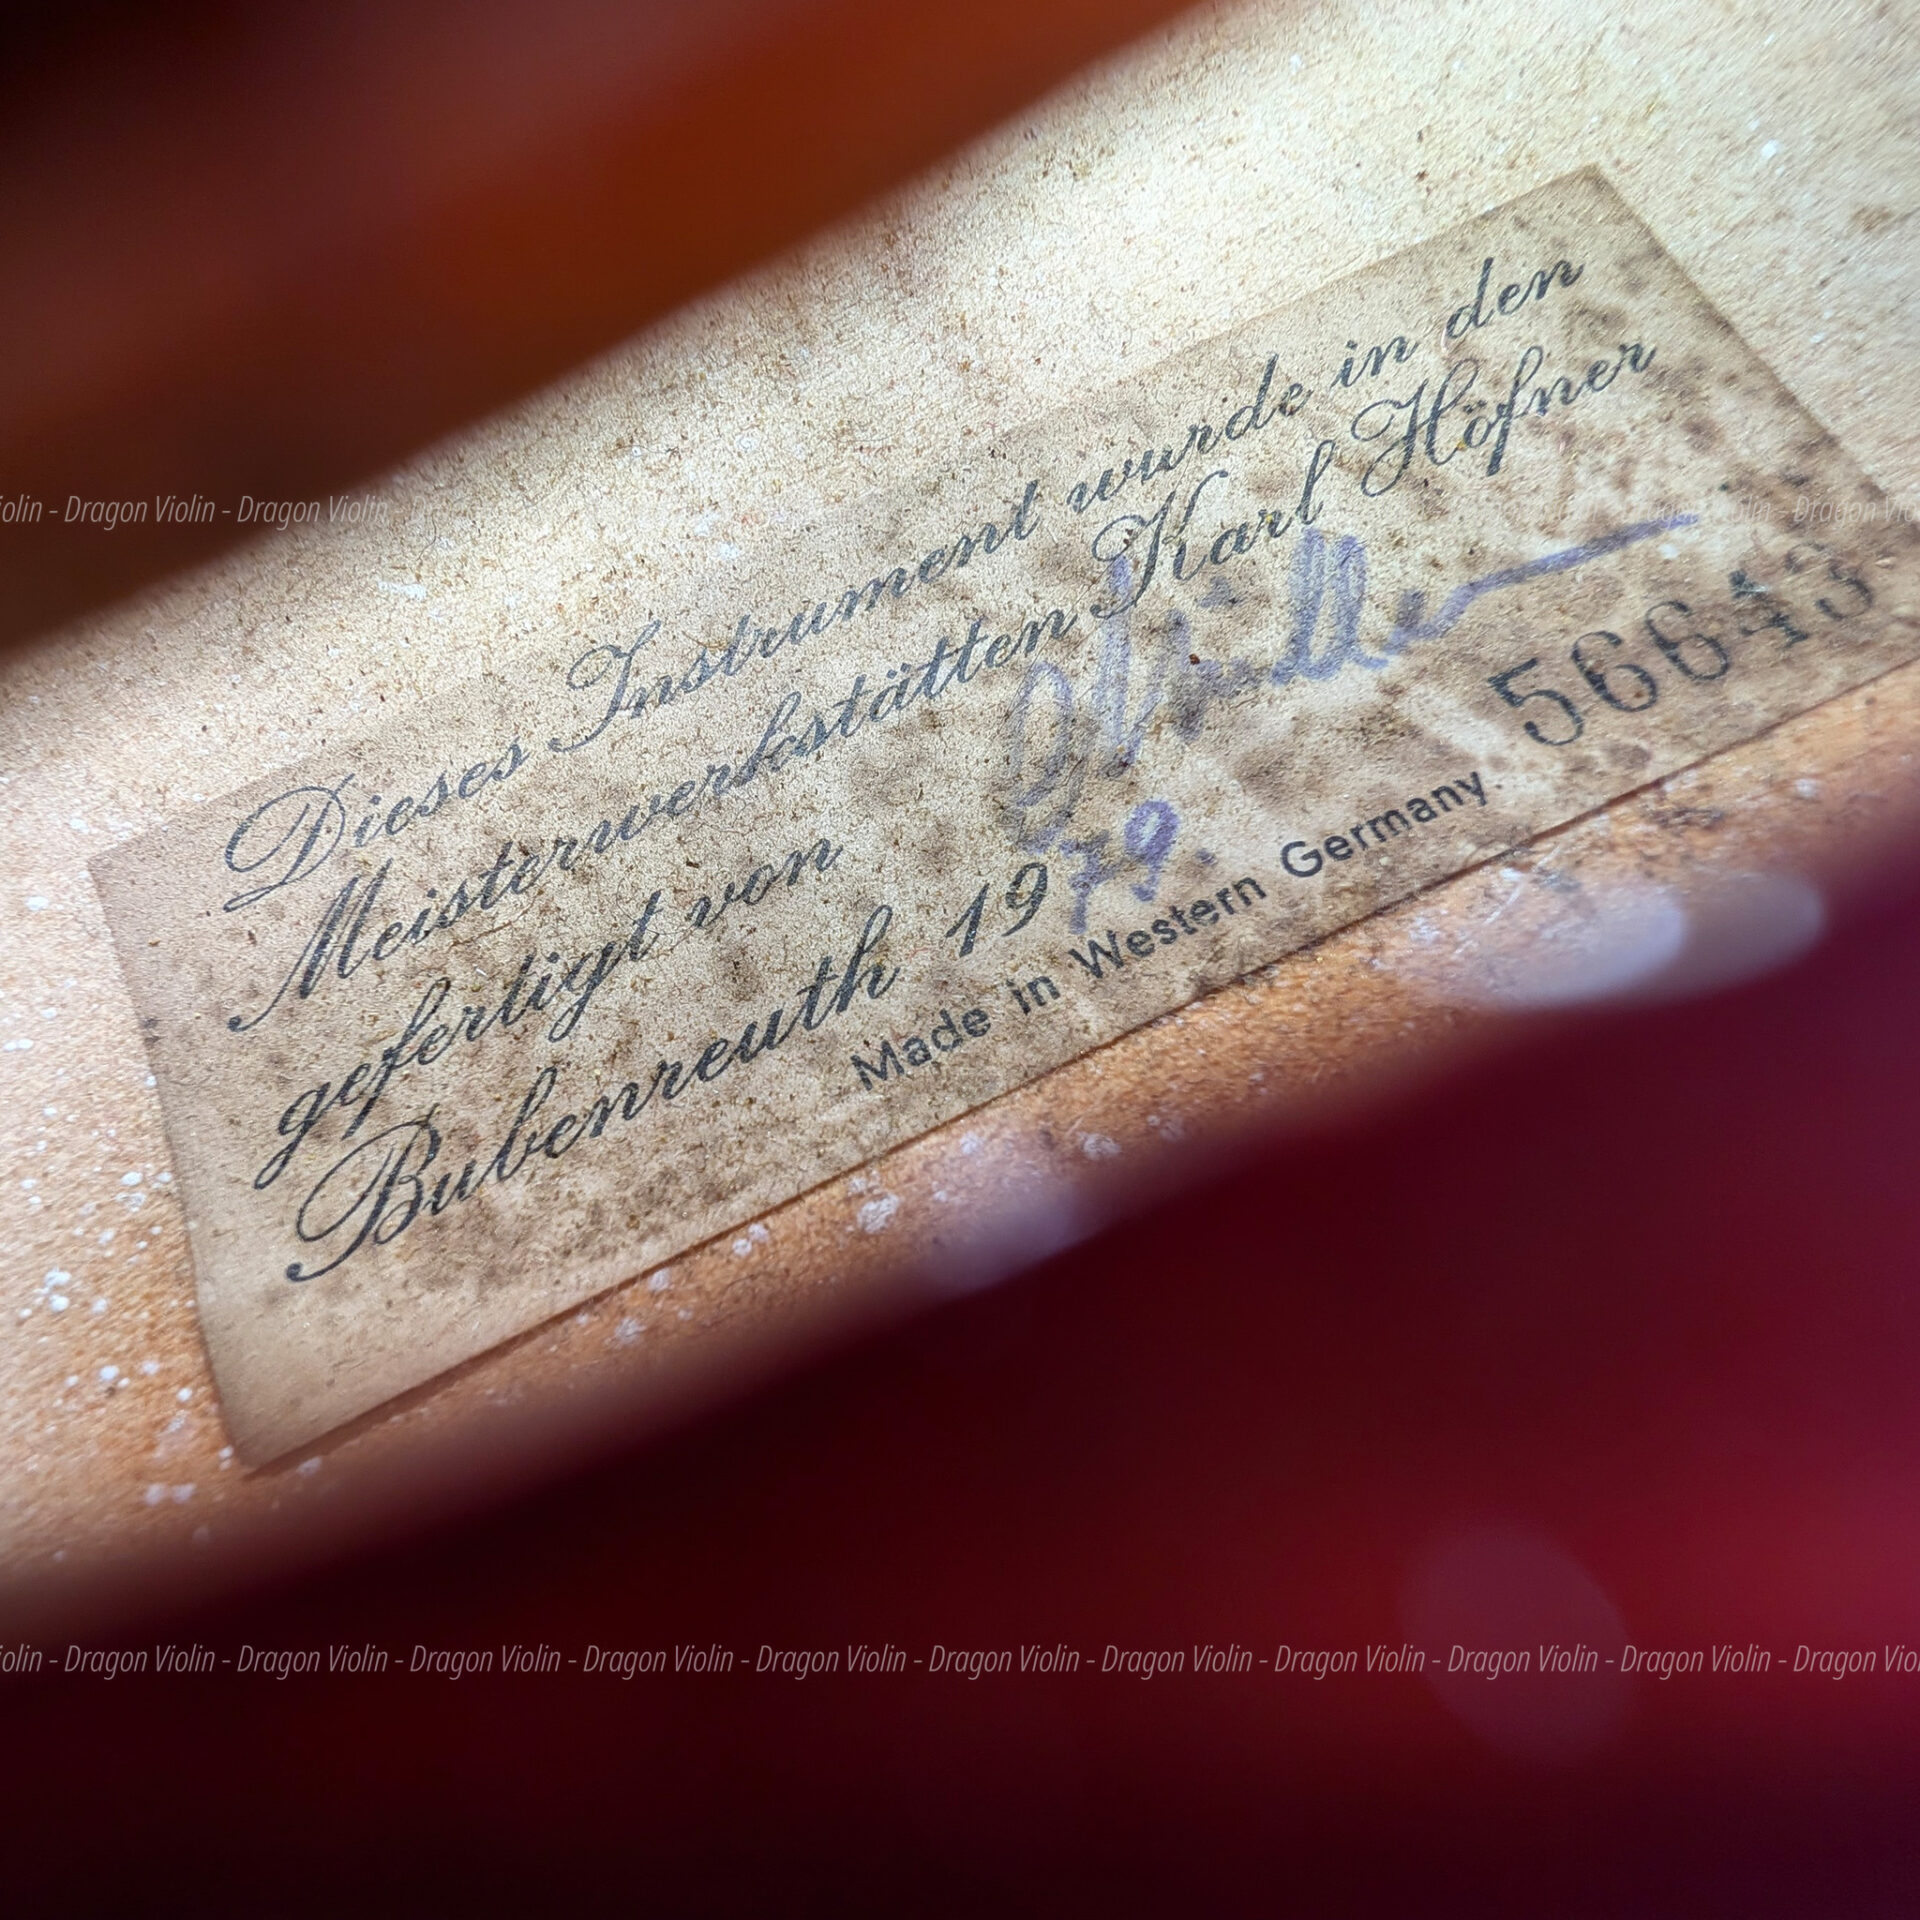 Dieses Instrument wurde in den
Meisterwerkstätten Karl Höfner
gefertigt von
Bubenreuth 1979.
56643
Made in Western Germany.
Dragon Violin - Dragon Violin
Dragon Violin
- Dragon Violin - Dragon Violin - Dragon Violin - Dragon Violin - Dragon Violin - Dragon Violin - Dragon Violin - Dragon Violin - Dragon Violin - Dragon Violin - Dragon